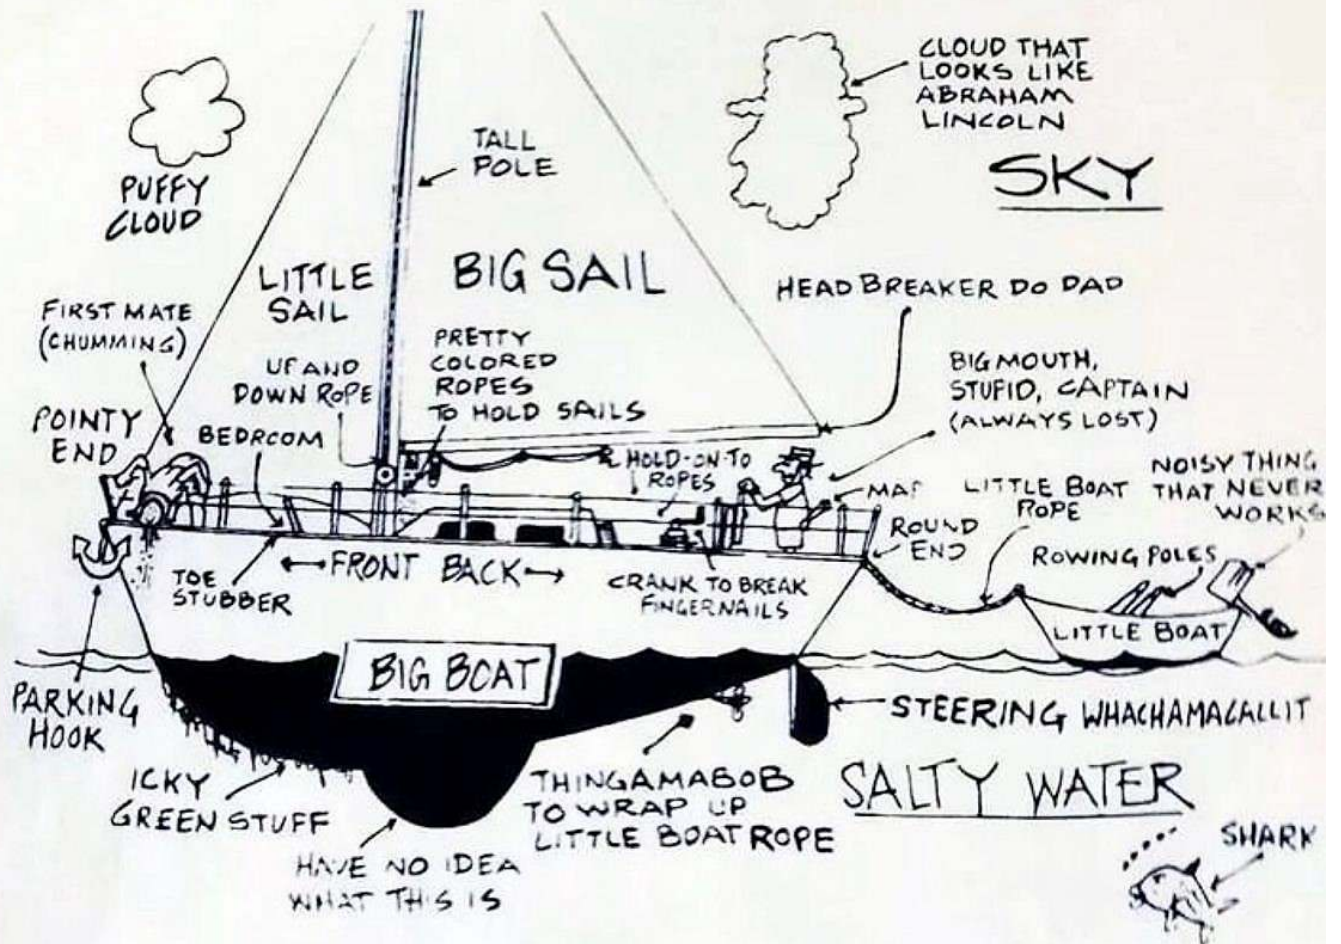 CLOUD THAT
LOOKS LIKE
ABRAHAM
LINCOLN
SKY
PUFFY
CLOUD
TALL
POLE
LITTLE
SAIL
BIG SAIL
HEAD BREAKER DO DAD
FIRST MATE
(CHUMMING)
UP AND
DOWN ROPE
PRETTY
COLORED
ROPES
TO HOLD SAILS
BIG MOUTH,
STUPID, CAPTAIN
(ALWAYS LOST)
POINTY
END
BEDROOM
HOLD-ON-TO
ROPES
MAP
LITTLE BOAT
ROPE
NOISY THING
THAT NEVER
WORKS
ROUND
END
ROWING POLES
TOE
STUBBER
FRONT BACK
CRANK TO BREAK
FINGERNAILS
LITTLE BOAT
BIG BOAT
PARKING
HOOK
STEERING WHACHAMACALLIT
ICKY
GREEN STUFF
THINGAMABOB
TO WRAP UP
LITTLE BOAT ROPE
SALTY WATER
HAVE NO IDEA
WHAT THIS IS
SHARK